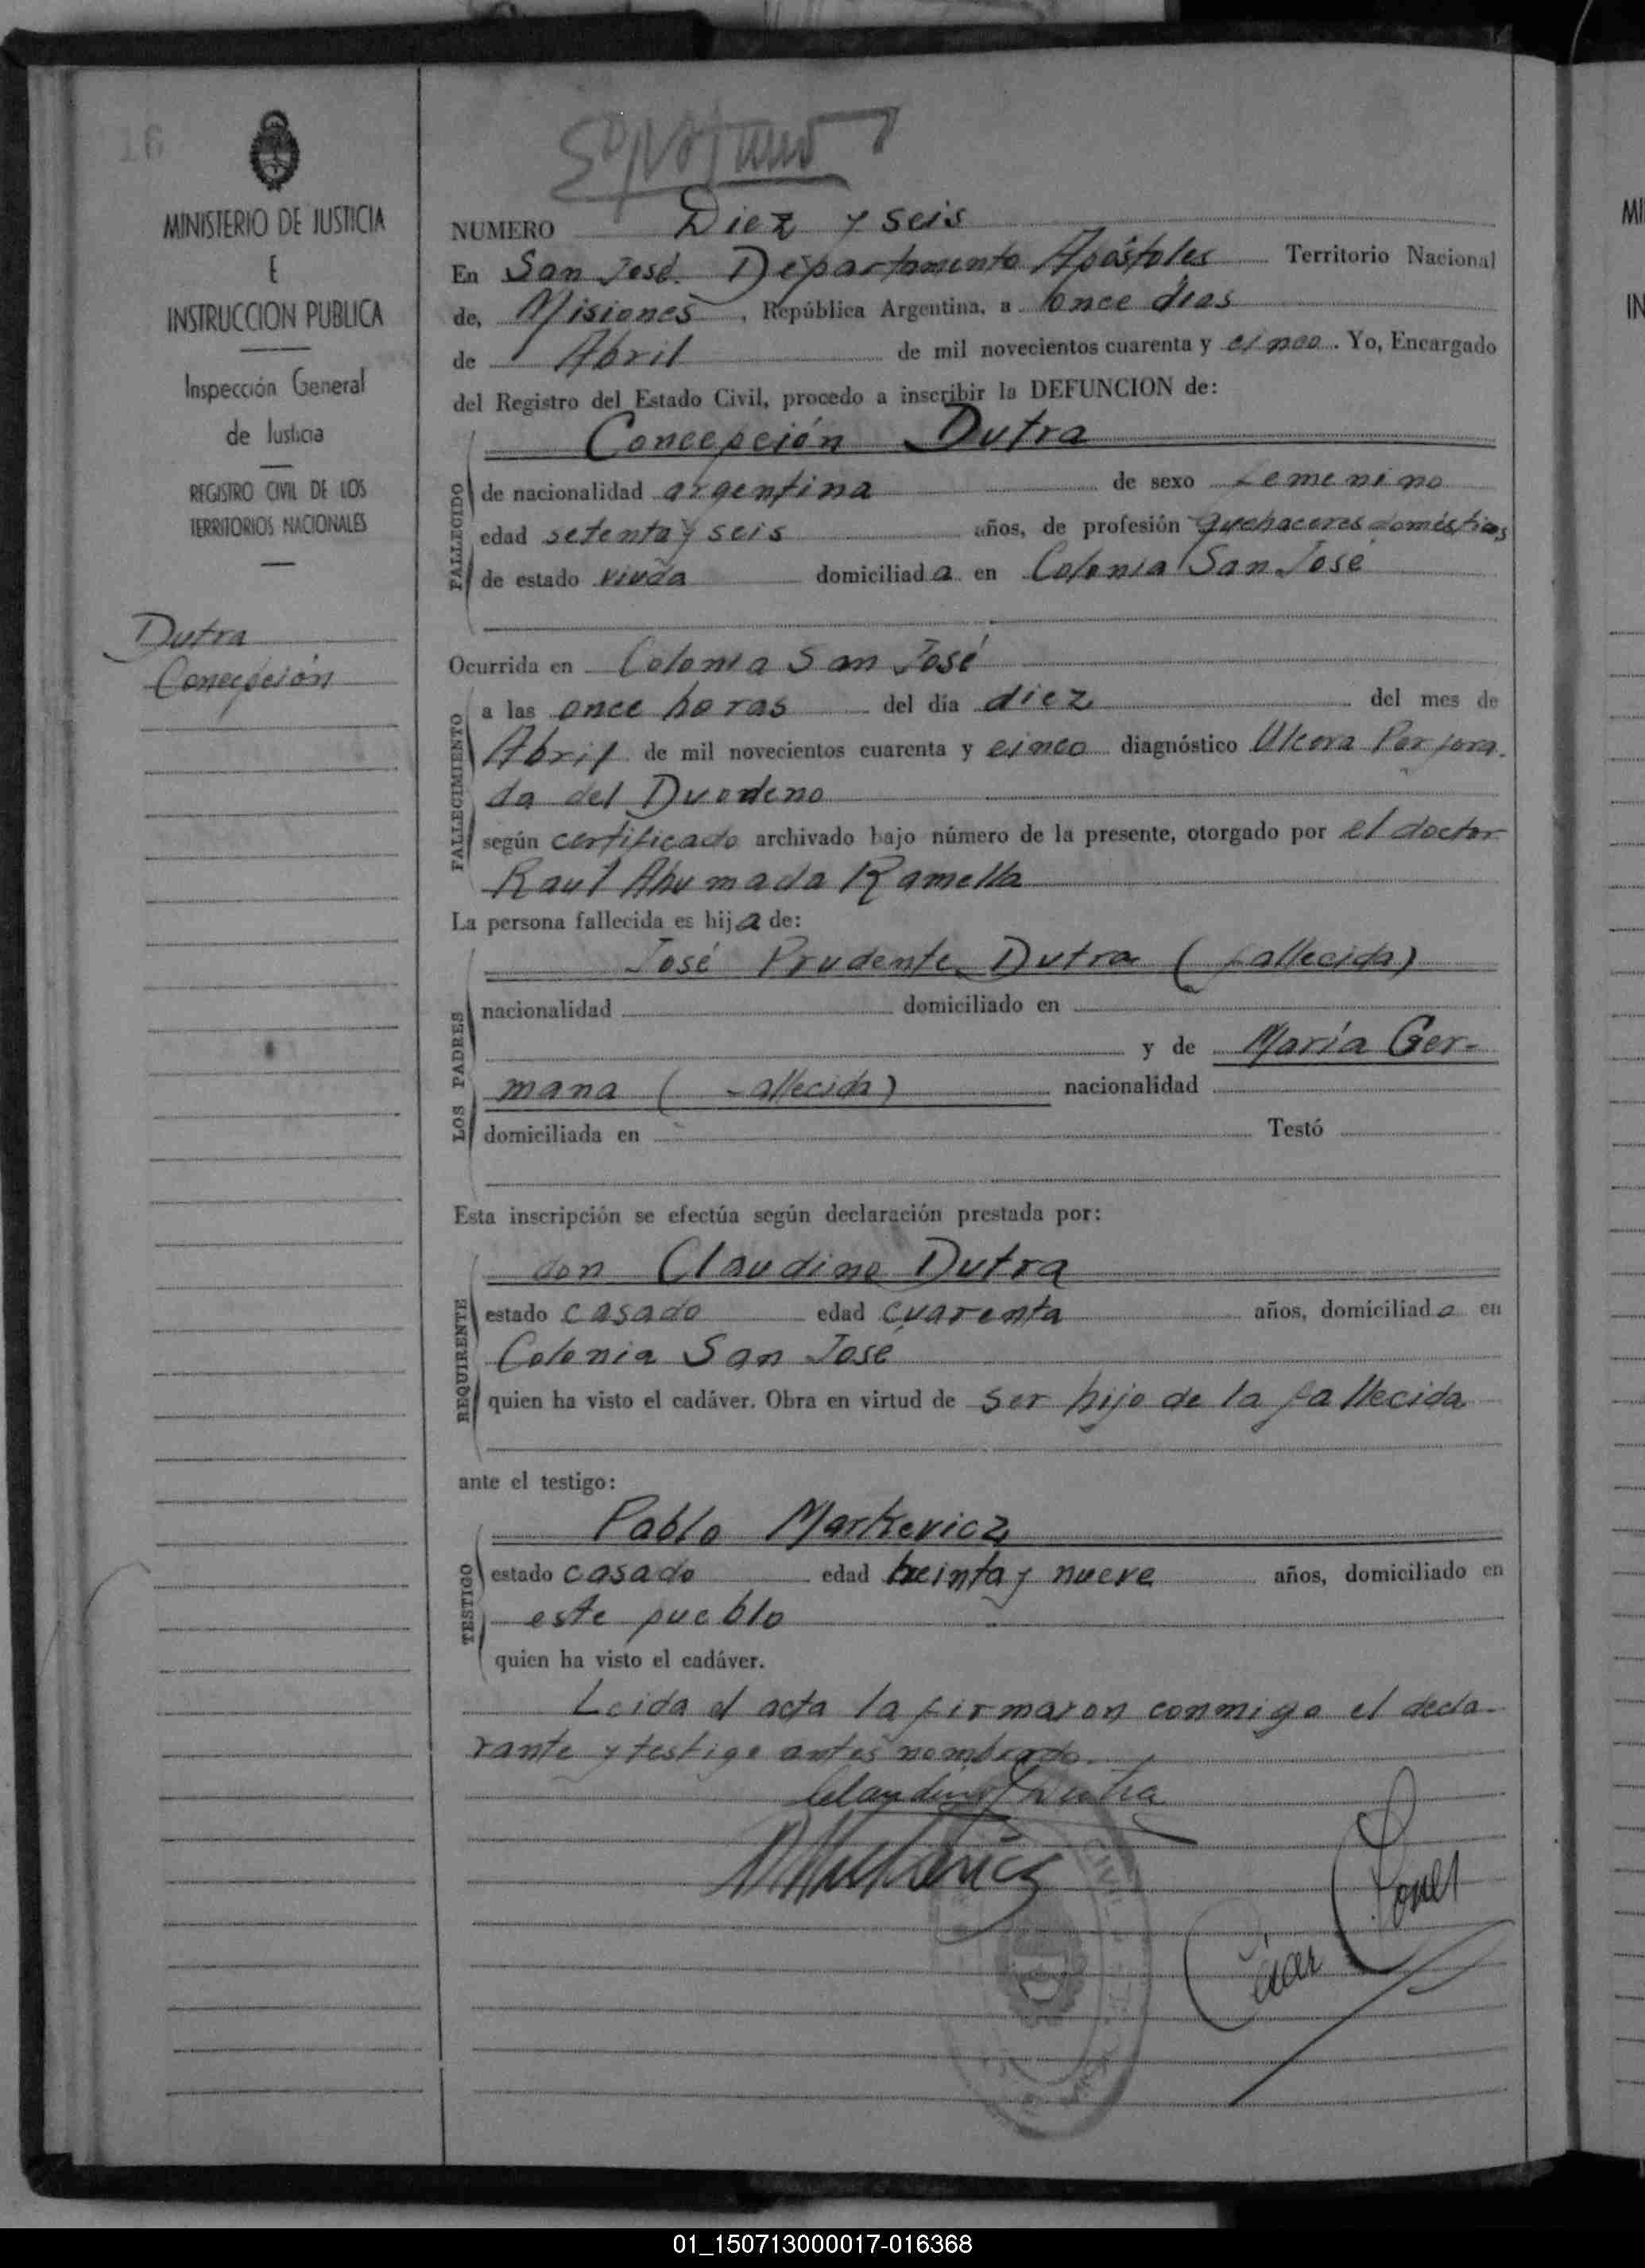 16
MINISTERIO DE JUSTICIA
E
INSTRUCCION PUBLICA
Inspección General
de Justicia
REGISTRO CIVIL DE LOS
TERRITORIOS NACIONALES
Dutra
Concepción
NUMERO Diez y seis
En San José. Departamento Apóstoles Territorio Nacional
de, Misiones, República Argentina, a once días
de Abril de mil novecientos cuarenta y cinco. Yo, Encargado
del Registro del Estado Civil, procedo a inscribir la DEFUNCION de:
Concepción Dutra
FALLECIDO
de nacionalidad argentina de sexo femenino
edad setenta y seis años, de profesión quehaceres domésticos
de estado viuda domiciliada en Colonia San José
Ocurrida en Colonia San José
FALLECIMIENTO
a las once horas del día diez del mes de
Abril de mil novecientos cuarenta y cinco diagnóstico Ulcera Perfora-
da del Duodeno
según certificado archivado bajo número de la presente, otorgado por el doctor
Raul Ahumada Ramella
La persona fallecida es hija de:
LOS PADRES
José Prudente Dutra (fallecida)
nacionalidad domiciliado en
y de María Ger-
mana (fallecida) nacionalidad
domiciliada en Testó
Esta inscripción se efectúa según declaración prestada por:
REQUIRENTE
don Claudino Dutra
estado casado edad cuarenta años, domiciliado en
Colonia San José
quien ha visto el cadáver. Obra en virtud de ser hijo de la fallecida
ante el testigo:
TESTIGO
Pablo Markevicz
estado casado edad treinta y nueve años, domiciliado en
este pueblo
quien ha visto el cadáver.
Leida el acta la firmaron conmigo el decla-
rante y testigo antes nombrado.
Claudino Dutra
César
01_150713000017-016368